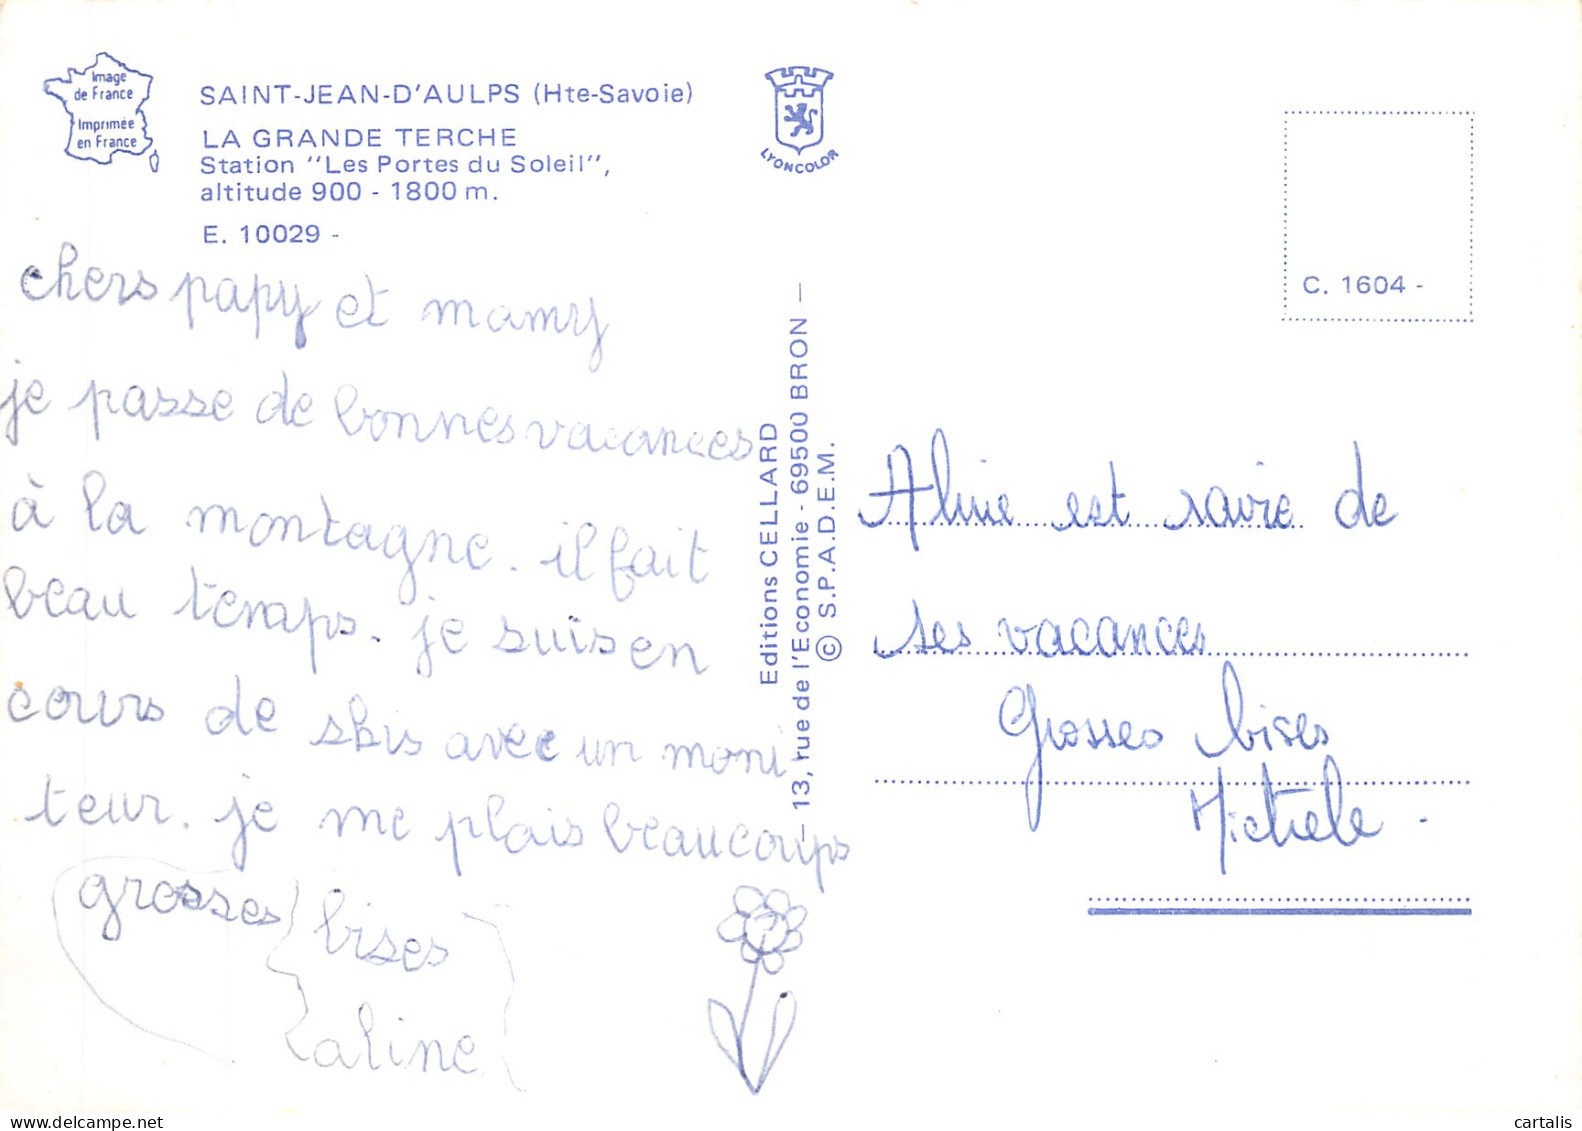 Image
de France
Imprimée
en France
SAINT-JEAN-D'AULPS (Hte-Savoie)
LA GRANDE TERCHE
Station "Les Portes du Soleil",
altitude 900 - 1800 m.
E. 10029 -
chers papy et mamy
je passe de bonnes vacances
à la montagne. il fait
beau temps. je suis en
cours de skis avec un moni
teur. je me plais beaucoups
grosses bises
aline
LYONCOLOR
Editions CELLARD
13, rue de l'Economie - 69500 BRON —
© S.P.A.D.E.M.
C. 1604 -
Aline est ravie de
ses vacances
Grosses bises
Michele.
delcampe.net
cartalis